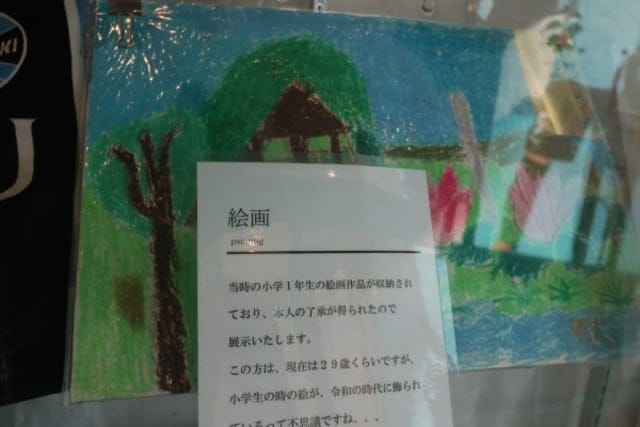 KI
U
絵画
painting
当時の小学1年生の絵画作品が収納され
ており、本人の了承が得られたので
展示いたします。
この方は、現在は29歳くらいですが、
小学生の時の絵が、令和の時代に飾られ
ているって不思議ですね、、、